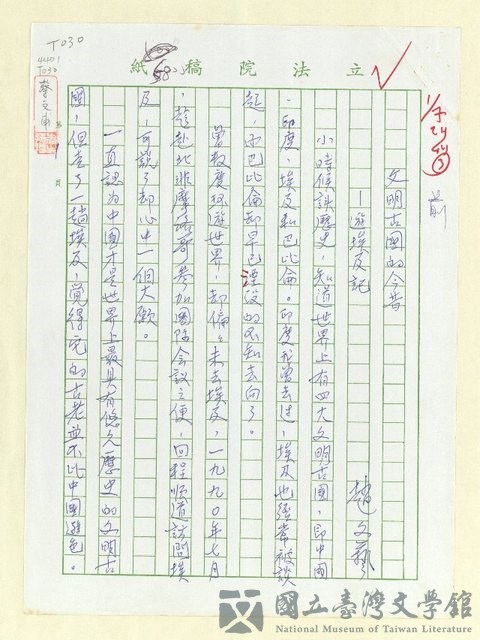 T030
4401
T030
580
立法院稿紙
前
文明古國的今昔
—遊埃及記
趙文藝
小時候讀歷史,知道世界上有四大文明古國,即中國
、印度、埃及和巴比倫。印度我曾去過,埃及也經常被談
起,而巴比倫卻早已湮沒的不知去向了。
曾數度環遊世界,卻偏偏未去埃及,一九九〇年七月
,趁赴北非摩洛哥參加國際會議之便,回程順道訪問埃
及,可說了卻心中一個大願。
一直認為中國才是世界上最具有悠久歷史的文明古
國,但去了一趟埃及,覺得它的古老並不比中國遜色。
第
頁
國立臺灣文學館
National Museum of Taiwan Literature